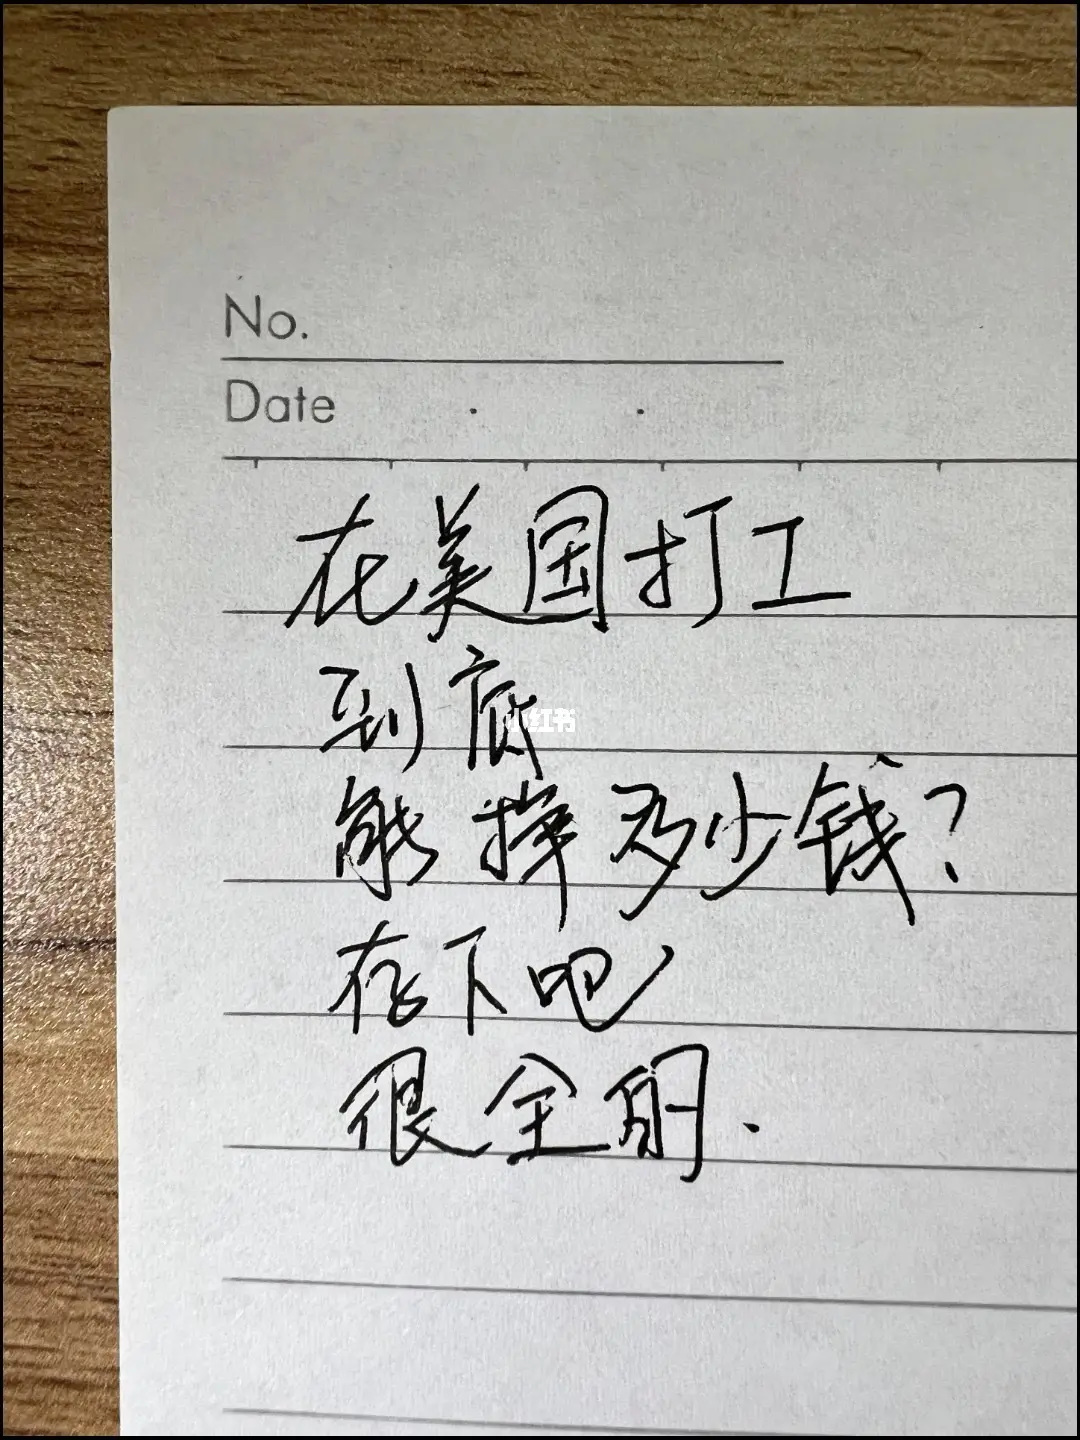 No.
Date
在美国打工
到底
小红书
能挣多少钱？
存下吧
很全的.